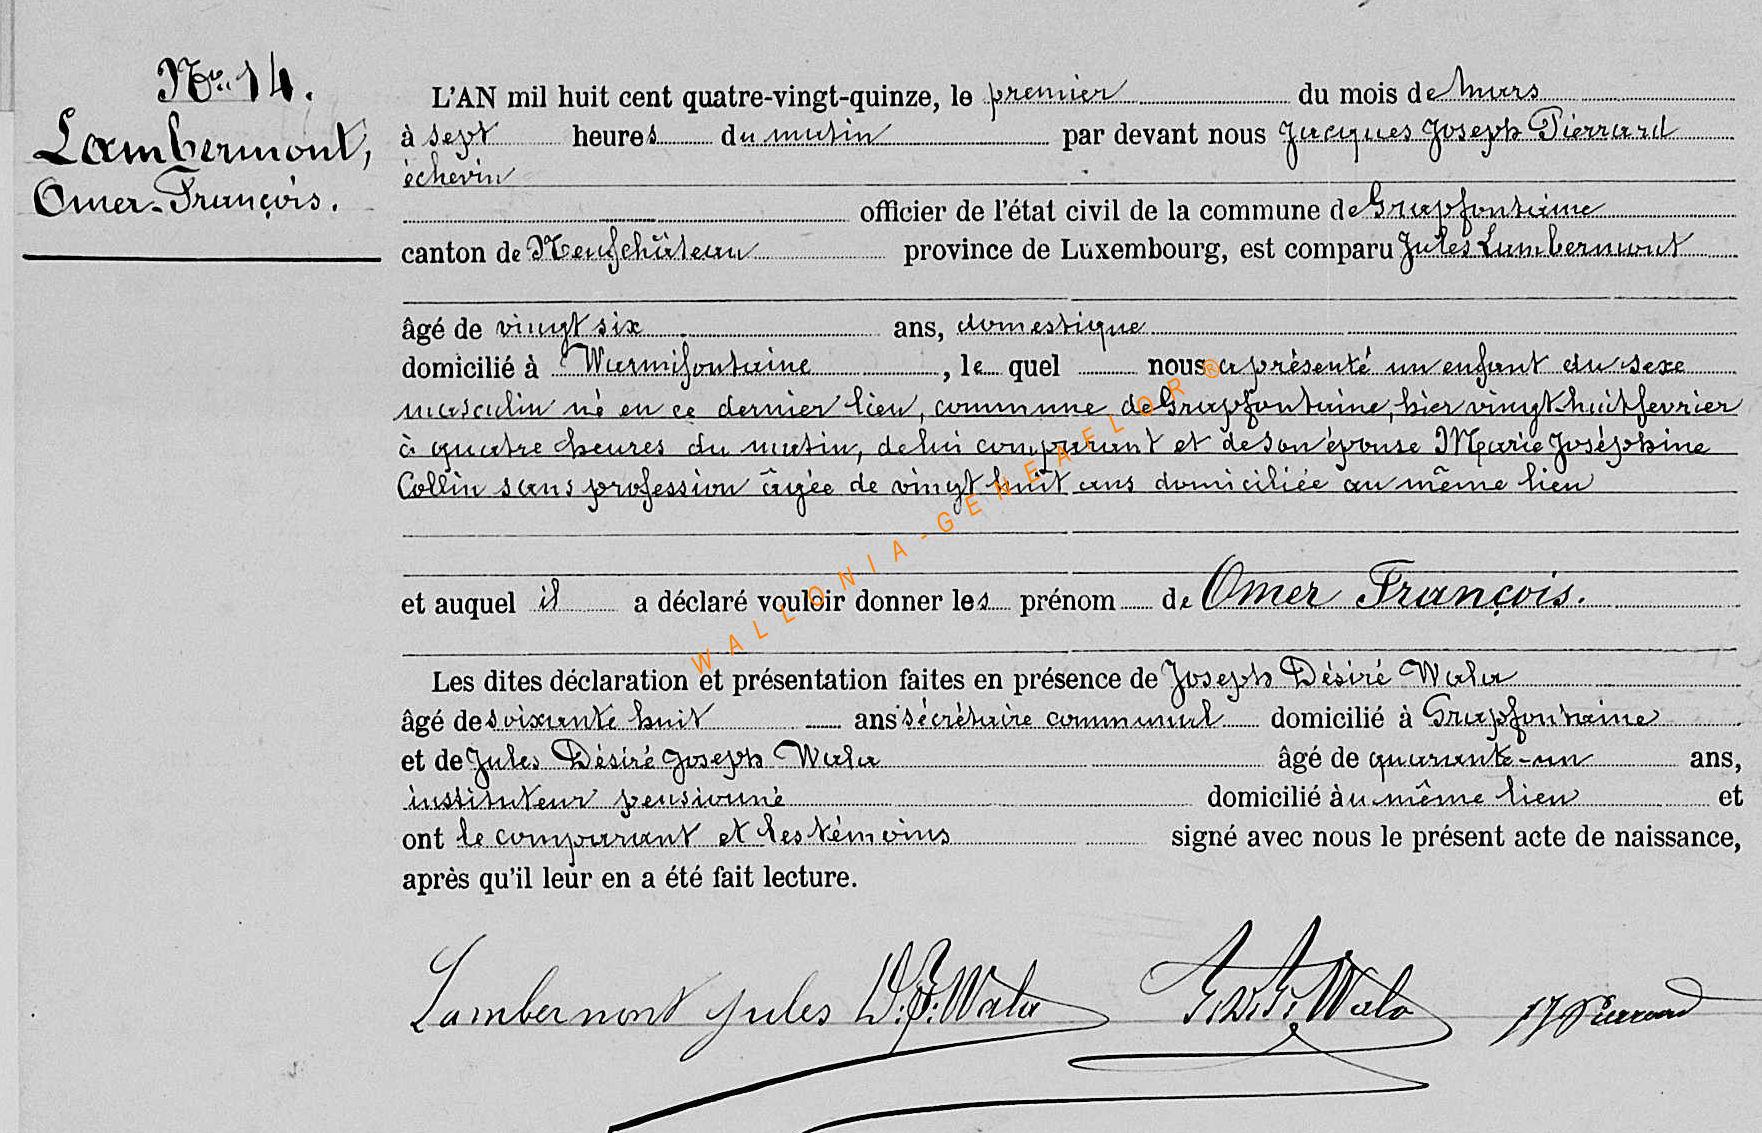 No. 14.
Lambermont,
Omer-François.
L'AN mil huit cent quatre-vingt-quinze, le premier du mois de Mars
à sept heures du matin par devant nous Jacques Joseph Pierrard
échevin
officier de l'état civil de la commune de Grapfontaine
canton de Neufchâteau province de Luxembourg, est comparu Jules Lambermont
âgé de vingt six ans, domestique
domicilié à Warmifontaine, le quel nous a présenté un enfant du sexe
masculin né en ce dernier lieu, commune de Grapfontaine, hier vingt-huit fevrier
à quatre heures du matin, de lui comparant et de son épouse Marie Joséphine
Collin sans profession âgée de vingt huit ans domiciliée au même lieu
et auquel il a déclaré vouloir donner les prénom de Omer François.
Les dites déclaration et présentation faites en présence de Joseph Désiré Wala
âgé de soixante huit ans secrétaire communal domicilié à Grapfontaine
et de Jules Désiré Joseph Wala âgé de quarante-un ans,
instituteur pensionné domicilié àu même lieu et
ont le comparant et les témoins signé avec nous le présent acte de naissance,
après qu'il leur en a été fait lecture.
Lambermont Jules D. J. Wala J. D. J. Wala JJ Pierrard
WALLONIA-GENEALOR®